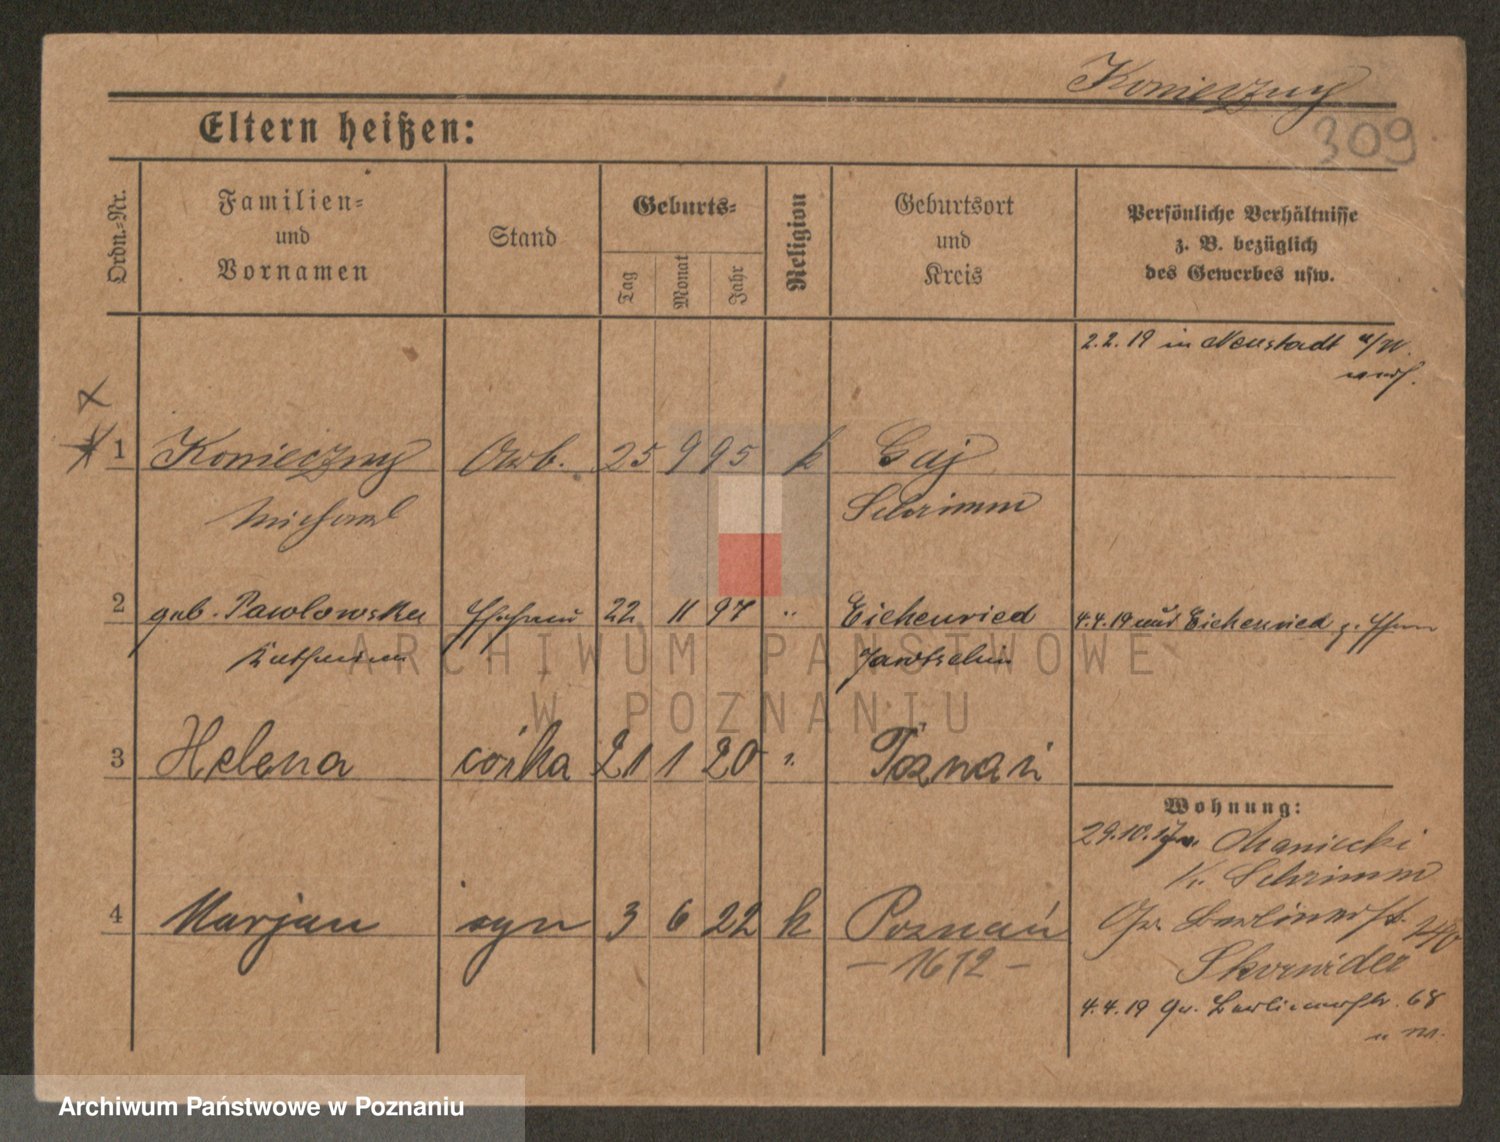 Konieczny
309
Eltern heißen:
Ordn.-Nr.
Familien-
und
Vornamen
Stand
Geburts-
Tag
Monat
Jahr
Religion
Geburtsort
und
Kreis
Persönliche Verhältnisse
z. B. bezüglich
des Gewerbes usw.
2.2.19 in Neustadt a/W.
verh.
1 Konieczny Arb. 25 9 95 k Gaj
Michael Schrimm
2 geb. Pawlowska Ehefrau 22 11 97 " Eichenried 4.4.19 aus Eichenried z. Ehem
Katharina Jarotschin
3 Helena córka 21 1 20 " Poznań
Wohnung:
29.10.17 v. Maniecki
K. Schrimm
4 Marjan syn 3 6 22 k Poznań
Gr. Berlinerstr.
- 1612 -
4.4.19 Gr. Berlinerstr. 68
ARCHIWUM PAŃSTWOWE
W POZNANIU
Archiwum Państwowe w Poznaniu